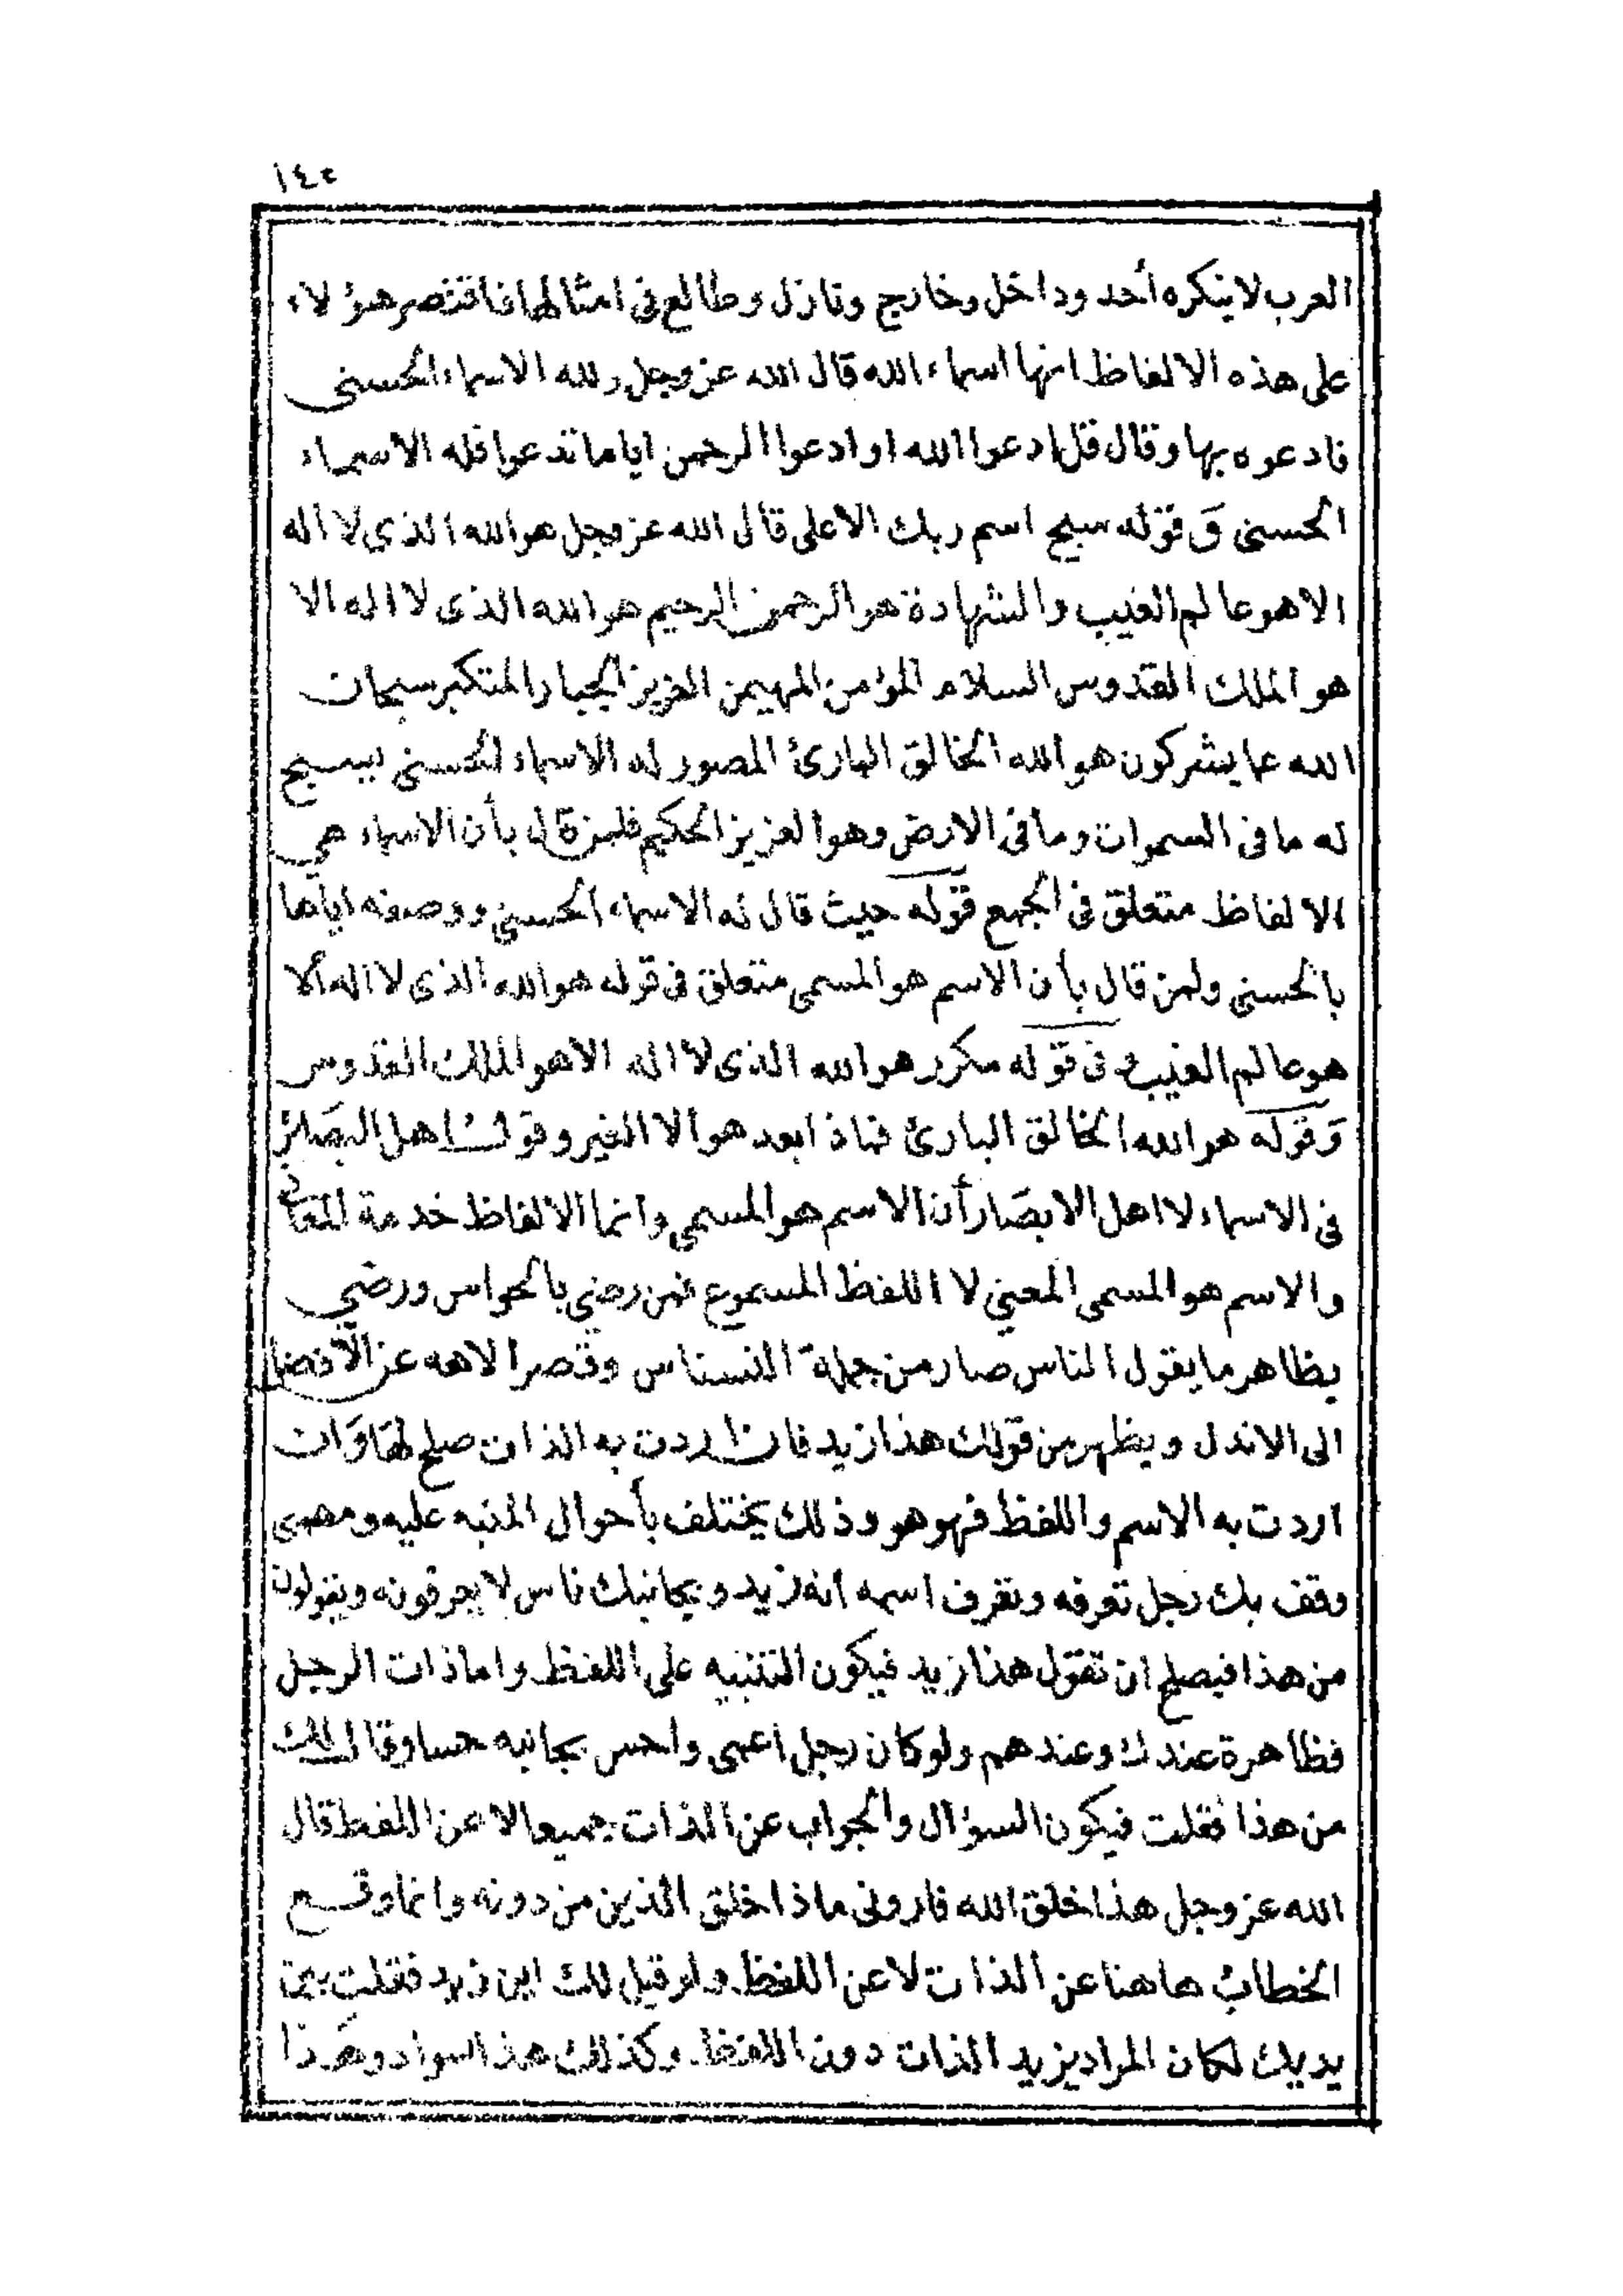 ١٤٥
العرب لا ينكره أحد وداخل وخارج ونازل وطالع في امثالها فاقتصر هؤلاء
على هذه الالفاظ انها اسماء الله قال الله عز وجل ولله الاسماء الحسنى
فادعوه بها وقال قل ادعوا الله او ادعوا الرحمن اياما تدعوا فله الاسماء
الحسنى وقوله سبح اسم ربك الاعلى قال الله عز وجل هو الله الذي لا اله
الا هو عالم الغيب والشهادة هو الرحمن الرحيم هو الله الذى لا اله الا
هو الملك القدوس السلام المؤمن المهيمن العزيز الجبار المتكبر سبحان
الله عما يشركون هو الله الخالق البارئ المصور له الاسماء الحسنى يسبح
له ما في السموات وما في الارض وهو العزيز الحكيم فلمن قال بأن الاسماء هي
الالفاظ متعلق في الجمع قوله حيث قال له الاسماء الحسنى ووصفه اياها
بالحسنى ولمن قال بأن الاسم هو المسمى متعلق في قوله هو الله الذى لا اله الا
هو عالم الغيب وفى قوله مكرر هو الله الذى لا اله الا هو الملك القدوس
وقوله هو الله الخالق البارئ فماذا بعد هو الا الغير وقول اهل البصائر
في الاسماء لا اهل الابصار أن الاسم هو المسمى وانما الالفاظ خدمة للمعاني
والاسم هو المسمى المعنى لا اللفظ المسموع فمن رضي بالحواس ورضي
بظاهر ما يقول الناس صار من جملة النسناس وقصر الاهه عن الافضل
الى الانذل ويظهر من قولك هذا زيد فان اردت به الذات صلح لها وان
اردت به الاسم واللفظ فهو هو وذلك يختلف بأحوال المنبه عليه ومهمى
وقف بك رجل تعرفه وتعرف اسمه انه زيد وبجانبك ناس لا يعرفونه ويقولون
من هذا فيصلح ان تقول هذا زيد فيكون التنبيه على اللفظ واما ذات الرجل
فظاهرة عندك وعندهم ولو كان رجل اعمى واحس بجانبه حسا وقال لك
من هذا فقلت فيكون السؤال والجواب عن الذات جميعا لا عن اللفظ قال
الله عز وجل هذا خلق الله فاروني ماذا خلق الذين من دونه وانما وقع
الخطاب هاهنا عن الذات لا عن اللفظ ولو قيل لك اين زيد فقلت بين
يديك لكان المراد بزيد الذات دون اللفظ وكذلك هذا سواد وهذا